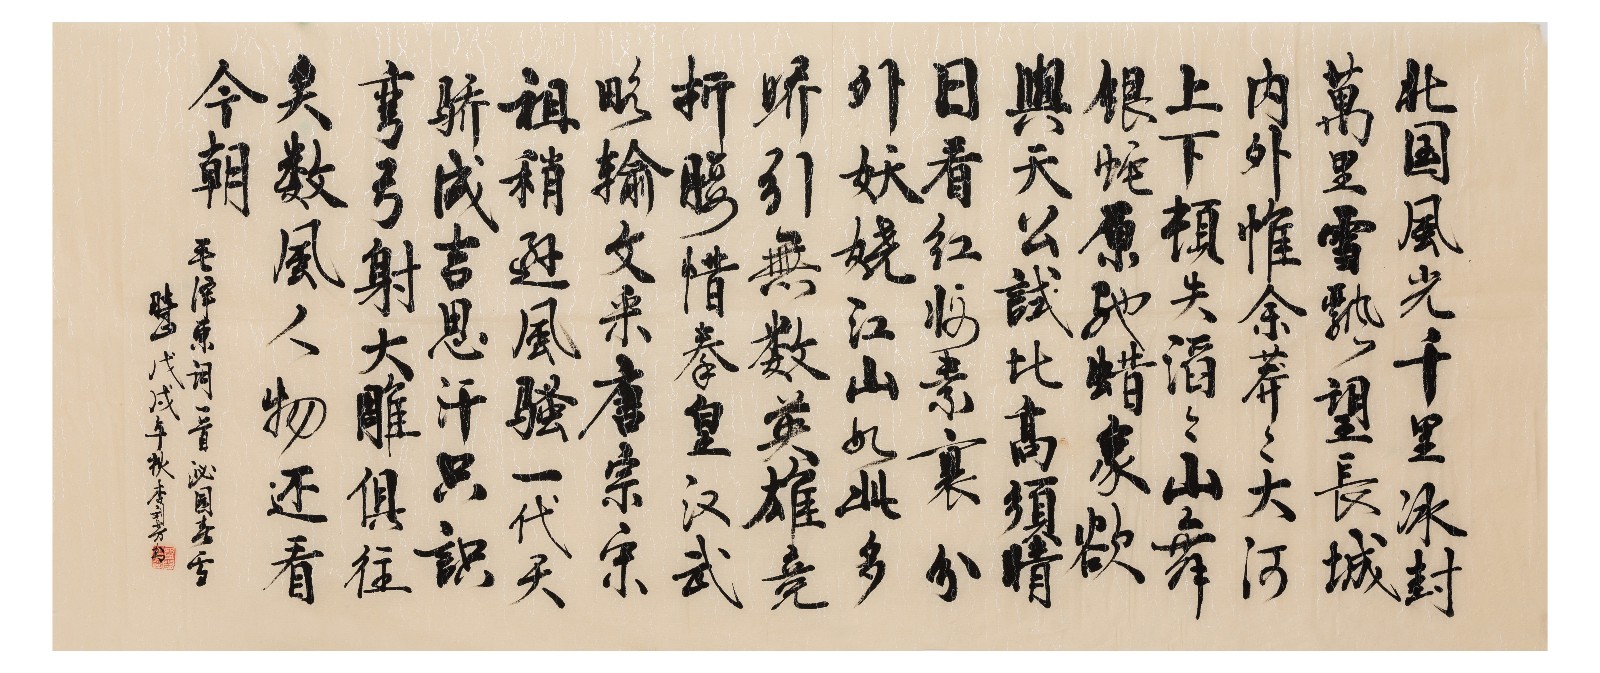 北国風光千里冰封
萬里雪飘望長城
内外惟余莽々大河
上下頓失滔々山舞
银蛇原驰蜡象欲
與天公試比高須晴
日看红妆素裹分
外妖娆江山如此多
娇引無数英雄竞
折腰惜秦皇汉武
略输文采唐宗宋
祖稍逊風骚一代天
骄成吉思汗只识
弯弓射大雕俱往
矣数風人物还看
今朝
毛泽東词一首沁园春雪
戊戌年秋李